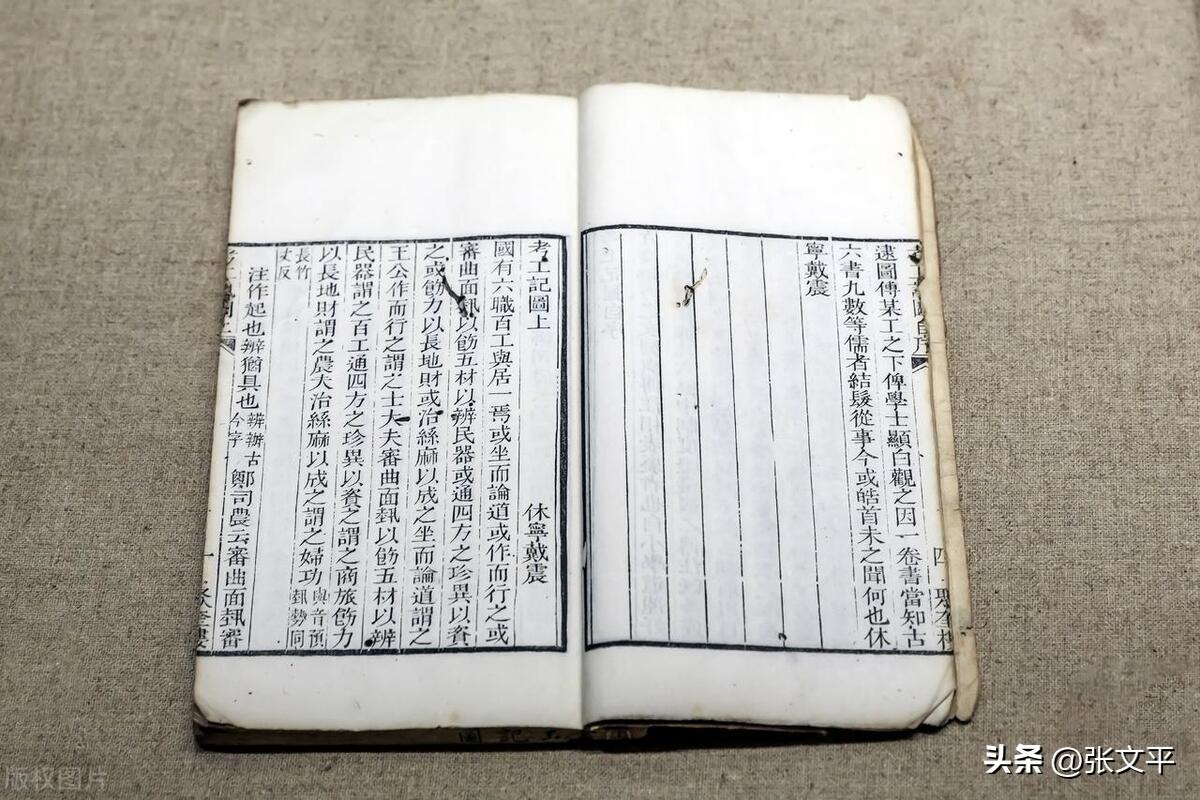 逮圖傳某工之下俾學士顯白觀之因一卷書當知古
六書九數等儒者結髮從事今或皓首未之聞何也休
寧戴震
考工記圖上
休寧戴震
國有六職百工與居一焉或坐而論道或作而行之或
審曲面埶以飭五材以辨民器或通四方之珍異以資
之或飭力以長地財或治絲麻以成之坐而論道謂之
王公作而行之謂之士大夫審曲面埶以飭五材以辨
民器謂之百工通四方之珍異以資之謂之商旅飭力
以長地財謂之農夫治絲麻以成之謂之婦功
與音預
埶勢同
長竹
丈反
注作起也辨猶具也
辨辦古
今字
鄭司農云審曲面埶審
記
圖
头条 @张文平
版权图片